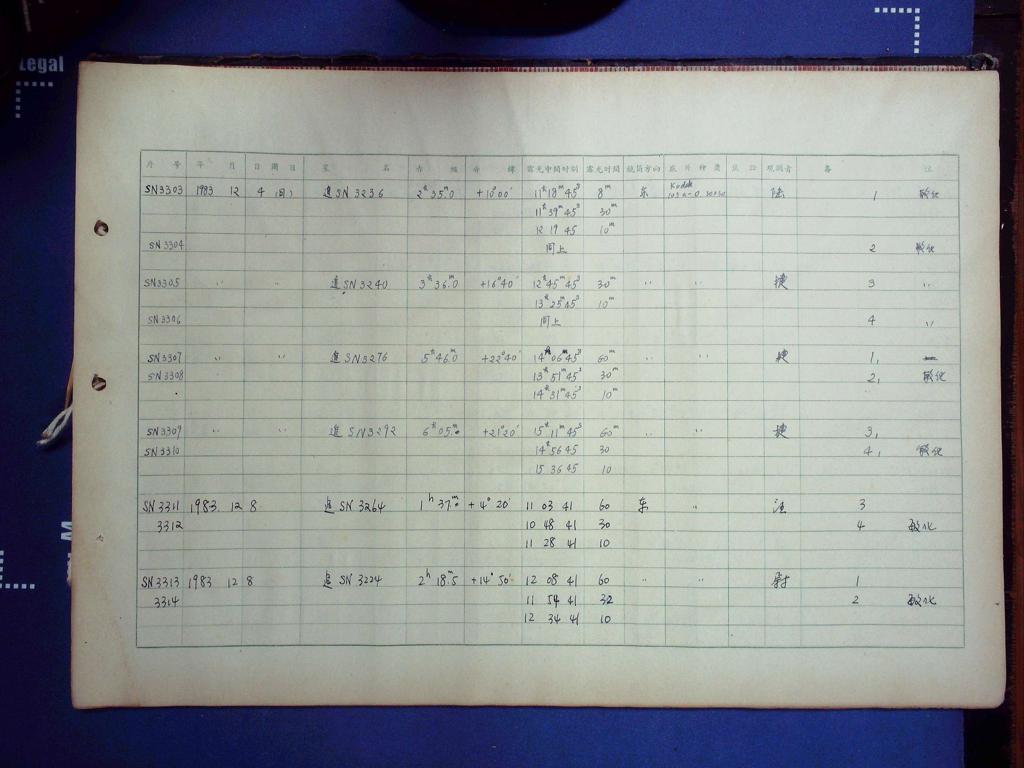 Legal
序 号 年 月 日 期 日 星 名 赤 经 赤 纬 露光中间时刻 露光时间 镜筒方向 底片种类 观测者 备 注
SN3303 1983 12 4 (日) 追SN3236 2h 35m.0 +10°00' 11h 18m 45s 8m 东 Kodak 103a-O 陆 1 敏化
11h 39m 45s 30m
12 19 45 10m
SN3304 同上 2 敏化
SN3305 〃 〃 追SN3240 3h 36m.0 +16°40' 12h 45m 45s 30m 〃 〃 捷 3 〃
13h 25m 45s 10m
SN3306 同上 4 〃
SN3307 〃 〃 追SN3276 5h 46m.0 +22°40' 14h 06m 45s 60m 〃 〃 捷 1, —
SN3308 13h 51m 45s 30m 2, 敏化
14h 31m 45s 10m
SN3309 〃 〃 追SN3292 6h 05m. +21°20' 15h 11m 45s 60m 〃 〃 捷 3,
SN3310 14h 56 45 30 4, 敏化
15 36 45 10
SN3311 1983 12 8 追SN3264 1h 37m. +4°20' 11 03 41 60 东 〃 汪 3
3312 10 48 41 30 4 敏化
11 28 41 10
SN3313 1983 12 8 追SN3224 2h 18m.5 +14°50' 12 08 41 60 〃 〃 尉 1
3314 11 54 41 32 2 敏化
12 34 41 10